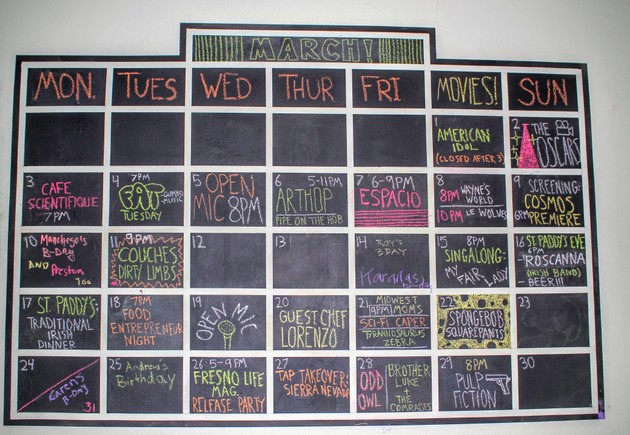 MARCH!
MON. TUES WED THUR FRI MOVIES! SUN
1
AMERICAN
IDOL
(CLOSED AFTER 3)
2
THE
OSCARS
3
CAFE
SCIENTIFIQUE
7PM
4
7PM
FAT
TUESDAY
GUMBO
MUSIC
5
OPEN
MIC 8PM
6 5-11PM
ARTHOP
PIPE ON THE HOB
7 6-9PM
ESPACIO
8
8PM WAYNE'S
WORLD
10PM LE WOLVES
9 SCREENING:
COSMOS
6PM PREMIERE
10 Manchego's
B-Day
AND Preston
Too
11 9PM
COUCHES
DIRTY LIMBS
12
13
14 Roy's
BDAY
15 8PM
SINGALONG:
MY FAIR LADY
16 ST PADDY'S EVE
6PM
ROSCANNA
(IRISH BAND)
BEER!!!
17 ST. PADDY'S:
TRADITIONAL
IRISH
DINNER
18 7PM
FOOD
ENTREPRENEUR
NIGHT
19
OPEN MIC
20
GUEST CHEF
LORENZO
21 MIDWEST
9PM MOMS
SCI-FI CAPER
TYRANNOSAURUS
ZEBRA
22
SPONGEBOB
SQUAREPANTS
23
24
Caren's
B-Day
31
25 Andrew's
Birthday
26 5-9PM
FRESNO LIFE
MAG.
RELEASE PARTY
27
TAP TAKEOVER:
SIERRA NEVADA
28
ODD
OWL
BROTHER
LUKE
& THE
COMRADES
29 8PM
PULP
FICTION
30